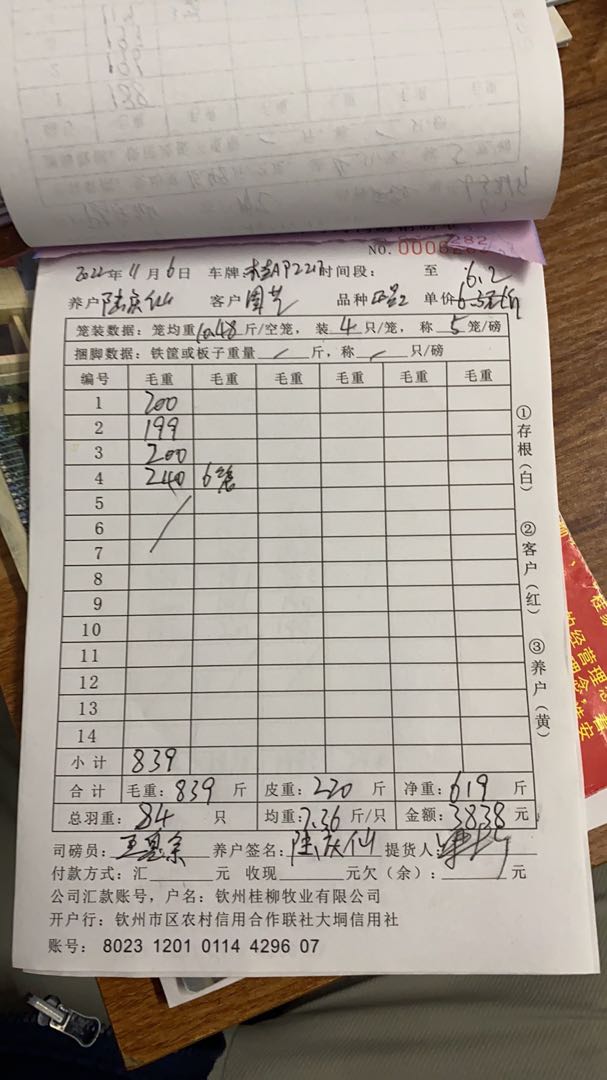 NO. 0000282
2022年11月6日 车牌 AP221 时间段： 至
6.2
养户 陆庆仙 客户 周艺 品种 单价 6.
笼装数据：笼均重 10.48 斤/空笼，装 4 只/笼，称 5 笼/磅
捆脚数据：铁筐或板子重量 / 斤，称 / 只/磅
编号 毛重 毛重 毛重 毛重 毛重 毛重
1 200
2 199
3 200
4 240 6笼
5
6
7
8
9
10
11
12
13
14
小计 839
合计 毛重：839 斤 皮重：220 斤 净重：619 斤
总羽重：84 只 均重：7.36 斤/只 金额：3838 元
司磅员： 养户签名：陆庆仙 提货人：
付款方式：汇 元 收现 元欠（余）： 元
公司汇款账号，户名：钦州桂柳牧业有限公司
开户行：钦州市区农村信用合作联社大垌信用社
账号： 8023 1201 0114 4296 07
①存根（白）
②客户（红）
③养户（黄）